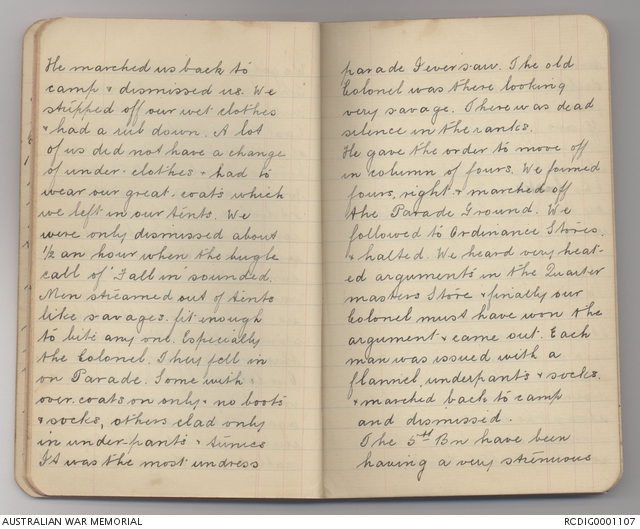 He marched us back to
camp & dismissed us. We
stripped off our wet clothes
& had a rub down. A lot
of us did not have a change
of under-clothes & had to
wear our great-coats which
we left in our tents. We
were only dismissed about
1/2 an hour when the bugle
call of 'Fall in' sounded.
Men streamed out of tents
like savages. fit enough
to bite any one. Especially
the Colonel. They fell in
on Parade. Some with
over-coats on only & no boots
& socks, others clad only
in under-pants & tunics
It was the most undress
parade I ever saw. The old
Colonel was there looking
very savage. There was dead
silence in the ranks.
He gave the order to move off
in column of fours. We formed
fours, right & marched off
the Parade Ground. We
followed to Ordinance Stores,
& halted. We heard very heat-
ed arguments in the Quarter
masters Store & finally our
Colonel must have won the
argument & came out. Each
man was issued with a
flannel, underpants & socks,
& marched back to camp
and dismissed.
The 5th Bn have been
having a very strenuous
AUSTRALIAN WAR MEMORIAL
RCDIG0001107